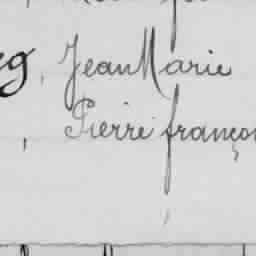 Jean Marie
Pierre françoi